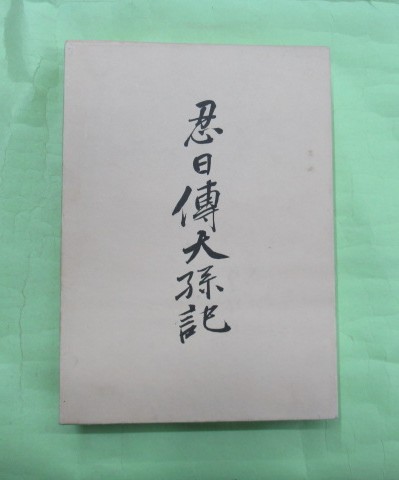 忍日傳天孫記